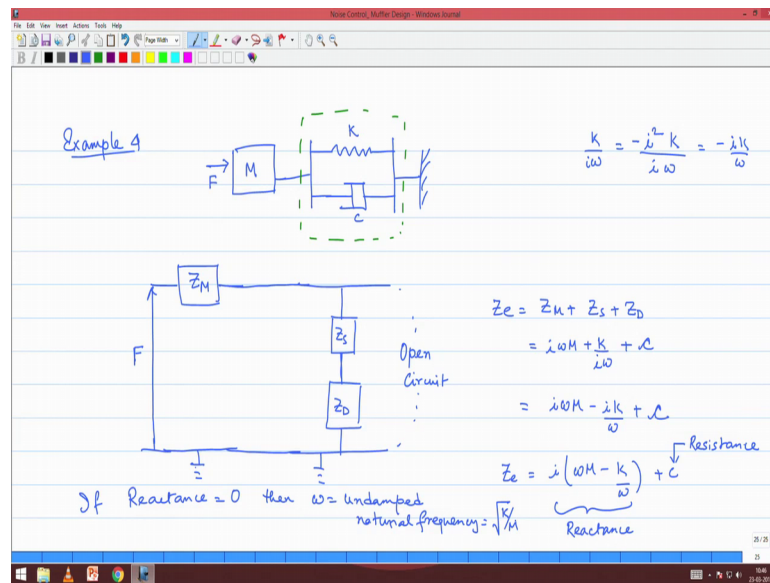 Noise Control, Muffler Design - Windows Journal
File Edit View Insert Actions Tools Help
Page Width
B I
Example 4
F
M
K
C
k/iω = -i²k/iω = -ik/ω
Z_M
F
Z_S
Z_D
Open
Circuit
Ze = Z_M + Z_S + Z_D
= iωM + k/iω + C
= iωM - ik/ω + C
Resistance
Ze = i(ωM - k/ω) + C
Reactance
If Reactance = 0 then ω = undamped
natural frequency = √K/M
25 / 25
25
10:46